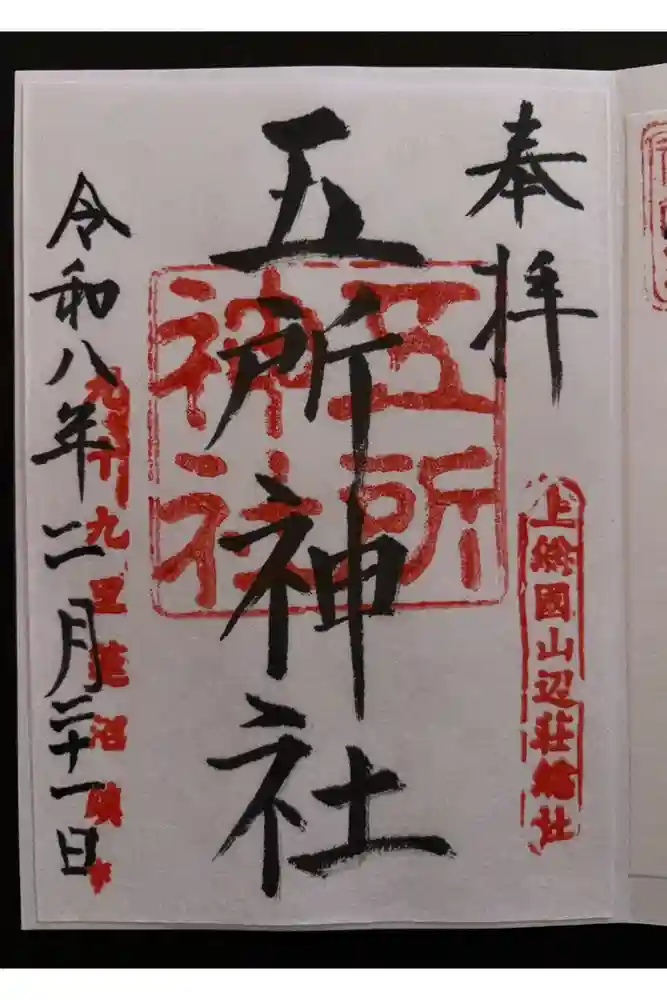 奉拝
上総国山辺荘総社
五所神社
五所神社
令和八年二月二十一日
九十九里蓮沼鎮守